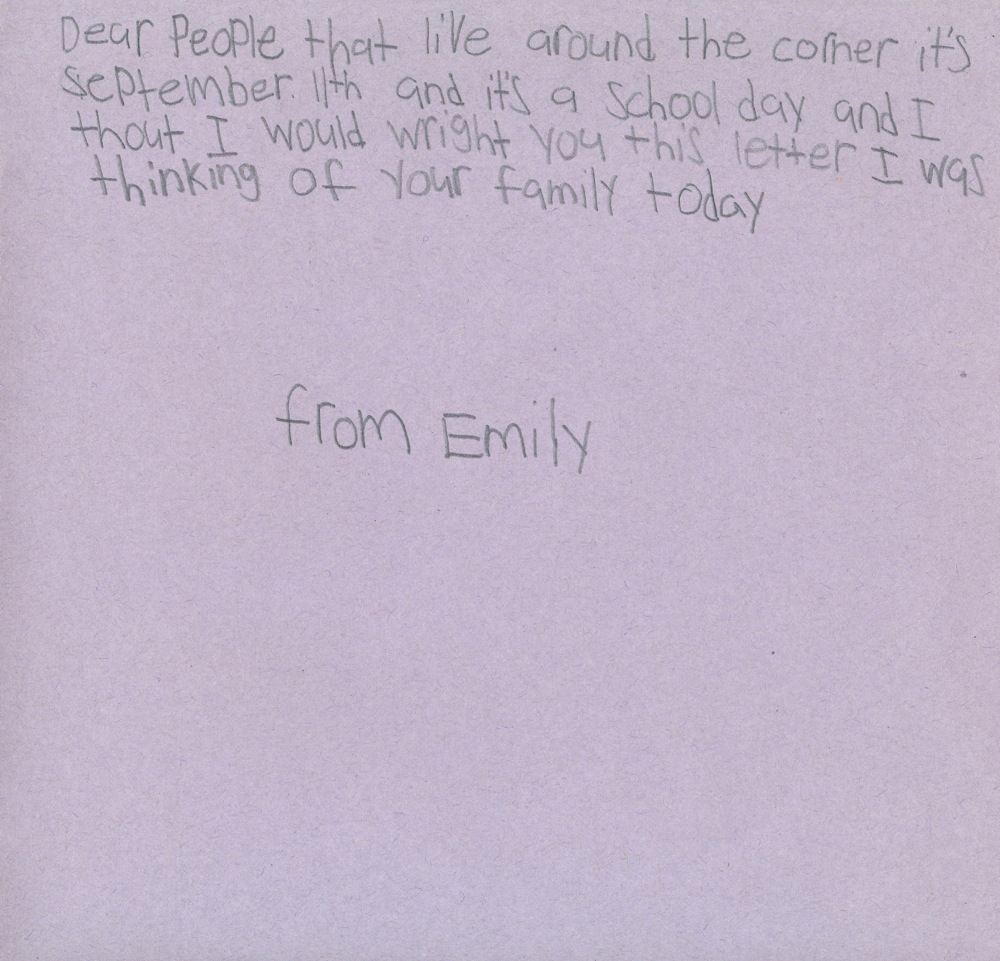 Dear People that live around the corner it's
September. 11th and it's a School day and I
thout I would wright you this letter I was
thinking of your family today
from Emily